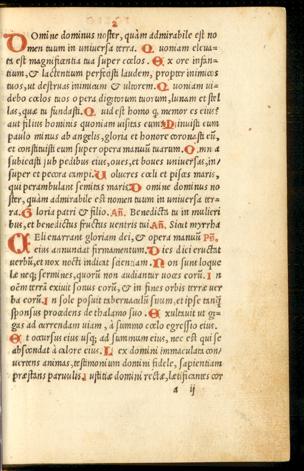 2
Domine dominus noster, quàm admirabile est no
men tuum in uniuersa terra. Quoniam eleua-
ta est magnificentia tua super cœlos. Ex ore infan-
tium, & lactentium perfecisti laudem, propter inimicos
tuos, ut destruas inimicum & ultorem. Quoniam ui-
debo cœlos tuos opera digitorum tuorum, lunam et stel
las, quæ tu fundasti. Quid est homo q, memor es eius?
aut filius hominis quoniam uisitas eum? Minuisti eum
paulo minus ab angelis, gloria et honore coronasti eū,
et constituisti eum super opera manuū tuarum. Omnia
subiecisti sub pedibus eius, oues, et boues uniuersas, in/
super et pecora campi. Uolucres cœli et pisces maris,
qui perambulant semitas maris. Domine dominus no
ster, quàm admirabile est nomen tuum in uniuersa ter-
ra. Gloria patri & filio. Añ. Benedicta tu in mulieri
bus, et benedictus fructus uentris tui. Añ. Sicut myrrha
Cœli enarrant gloriam dei, & opera manuū
eius annuntiat firmamentum. Dies diei eructat
uerbū, et nox nocti indicat scientiam. Non sunt loque
læ neq; sermones, quorū non audiantur uoces corū. In
oēm terrā exiuit sonus corū, & in fines orbis terræ uer
ba corū. In sole posuit tabernaculū suum, et ipse tanq̄
sponsus procedens de thalamo suo. Exultauit ut gi-
gas ad currendam uiam, à summo cœlo egressio eius.
Et occursus eius usq; ad summum eius, nec est qui se
abscondat à calore eius. Lex domini immaculata con/
uertens animas, testimonium domini fidele, sapientiam
præstans paruulis. Iustitiæ domini rectæ, lætificantes cor
a ij